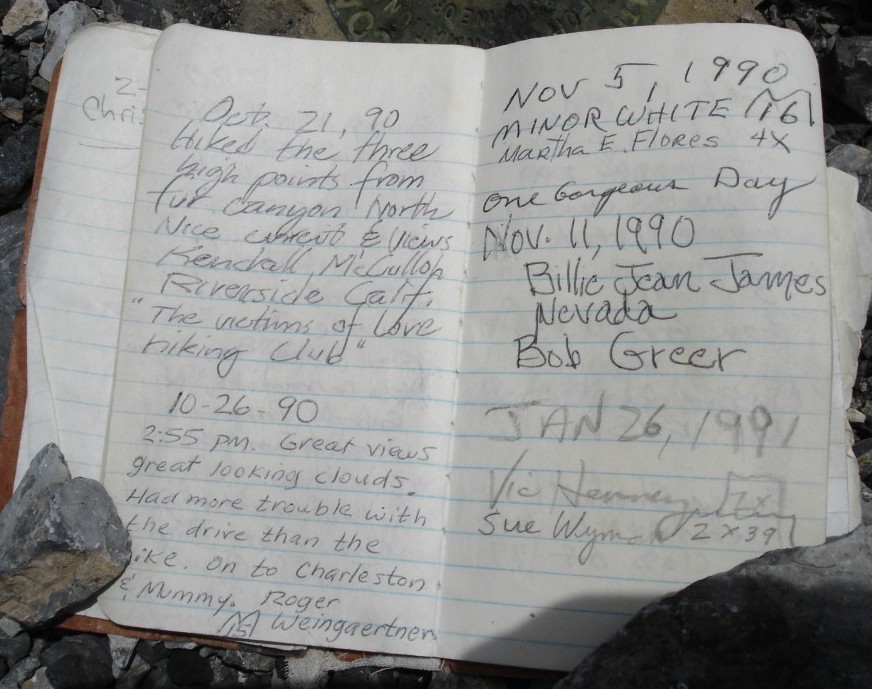 2-
Chris
Oct. 21, 90
Hiked the three
high points from
fur canyon North
Nice ascent & views
Kendall McCulloh
Riverside Calif.
"The victims of Love
hiking club"
10-26-90
2:55 pm. Great views
great looking clouds.
Had more trouble with
the drive than the
hike. on to Charleston
& Mummy. Roger
Weingaertner
NOV 5, 1990
MINOR WHITE 16
Martha E. Flores 4X
One Gorgeous Day
Nov. 11, 1990
Billie Jean James
Nevada
Bob Greer
JAN 26, 1991
Vic Henney 7x
Sue Wyman 2 x 39